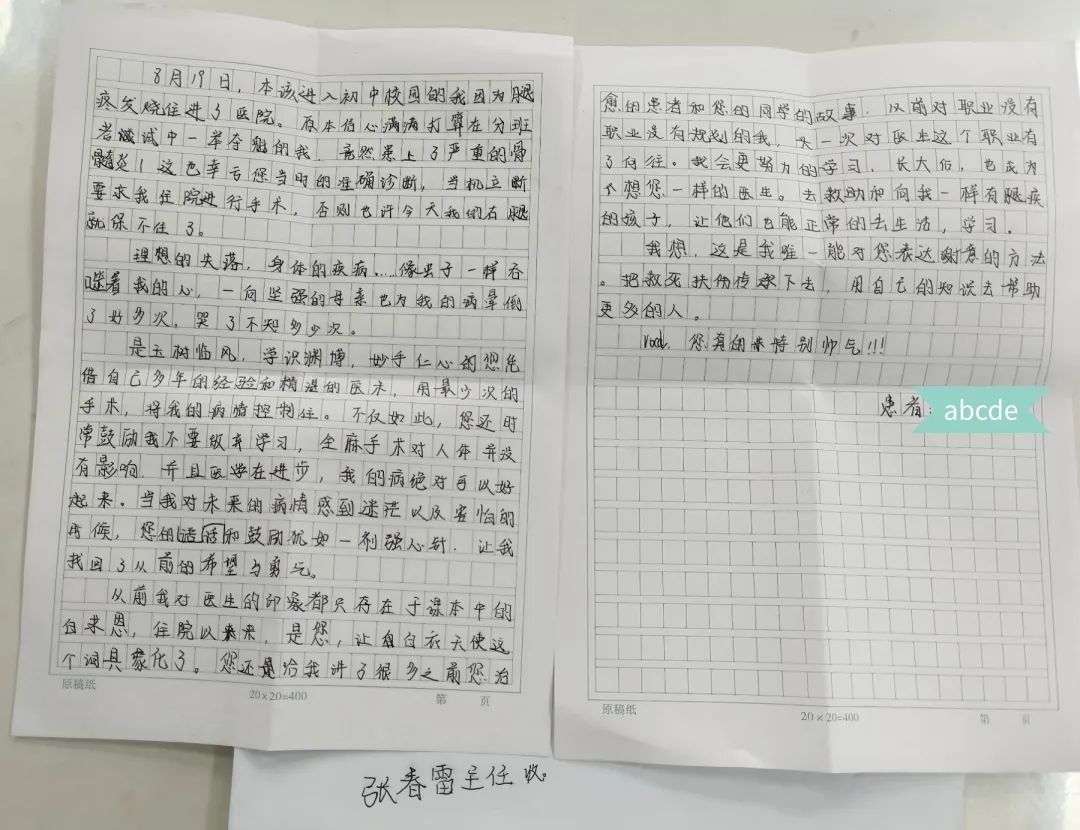 8月19日，本该进入初中校园的我因为腿
疼发烧住进了医院。原本信心满满打算在分班
考试中一举夺魁的我，竟然患上了严重的骨
髓炎！这也幸亏您当时的准确诊断，当机立断
要求我住院进行手术，否则也许今天我的右腿
就保不住了。
理想的失落，身体的疾病……像虫子一样吞
噬着我的心，一向坚强的母亲也为我的病晕倒
了好多次，哭了不知多少次。
是玉树临风，学识渊博，妙手仁心的您凭
借自己多年的经验和精湛的医术，用最少次的
手术，将我的病情控制住。不仅如此，您还时
常鼓励我不要放弃学习，全麻手术对人体并没
有影响，并且医学在进步，我的病绝对可以好
起来。当我对未来的病情感到迷茫以及害怕的
时候，您的话和鼓励犹如一剂强心针，让我
找回了从前的希望与勇气。
从前我对医生的印象都只存在于课本中的
白求恩，住院以来，是您，让白衣天使这
个词具象化了。您还是给我讲了很多之前您治
原稿纸
20×20=400
第 页
愈的患者和您的同学的故事，从前对职业没有
职业没有规划的我，头一次对医生这个职业有
了向往。我会更努力的学习，长大后，也成为
个想您一样的医生。去救助和向我一样有腿疾
的孩子，让他们也能正常的去生活，学习。
我想，这是我唯一能对您表达谢意的方法
。把救死扶伤传承下去，用自己的知识去帮助
更多的人。
您真的特别帅气!!!
患者：abcde
原稿纸
20×20=400
第 页
张春雷主任收